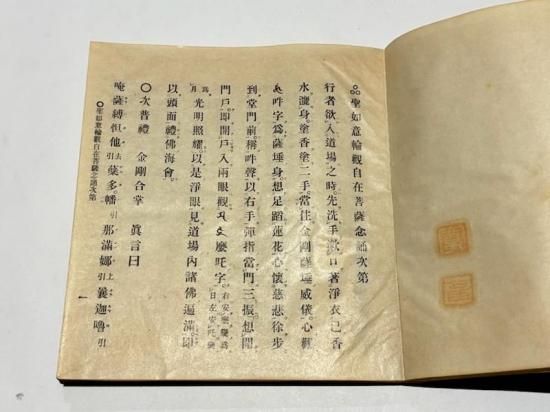 ◎聖如意輪觀自在菩薩念誦次第
行者欲入道場之時先洗手漱口著淨衣已香
水灑身。塗香塗二手。當住金剛薩埵威儀。心觀
吽字爲薩埵身。想足蹈蓮花心懷慈悲徐步
到堂門前。稱吽聲以右手彈指當門三。振想開
門戶。即開戶入兩眼觀麼吒字。右安麼變爲日左安吒變
爲月光明照耀。以是淨眼見道場內諸佛遍滿。即
以頭面禮佛海會。
○次普禮 金剛合掌 眞言曰
唵薩縛怛他去引蘖多。幡引那滿娜上引曩迦嚕引
○聖如意輪觀自在菩薩念誦次第
一